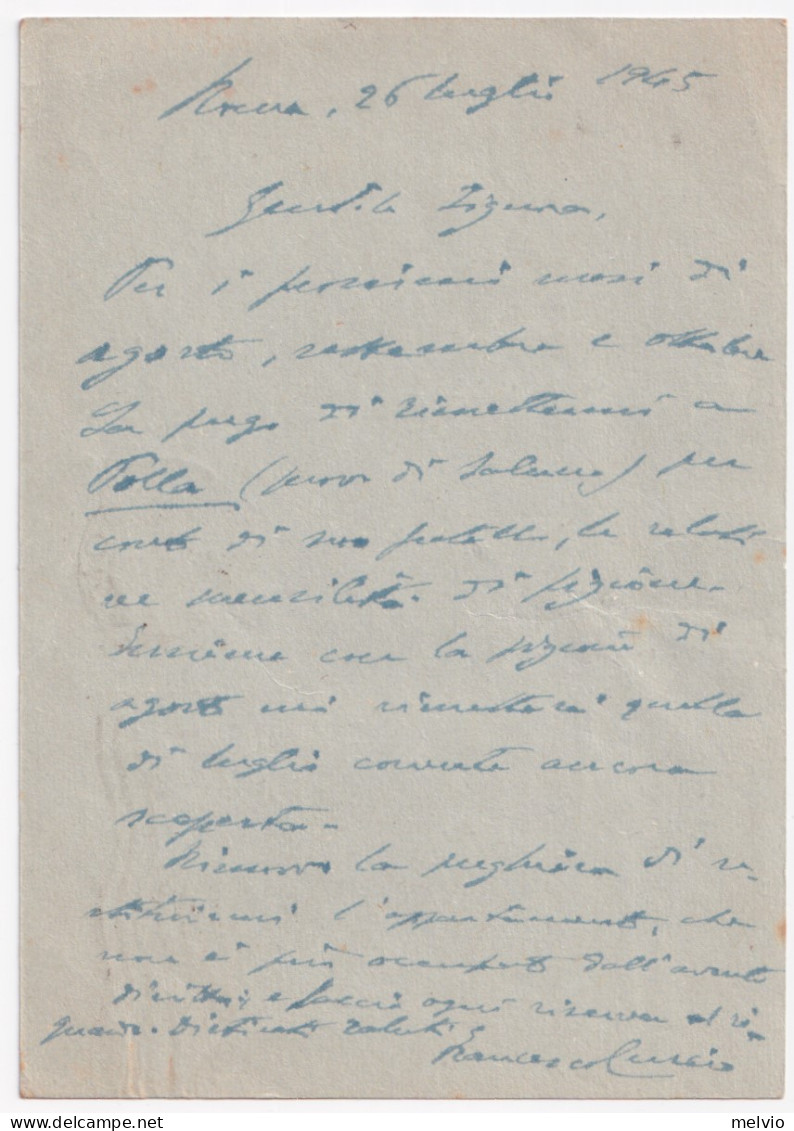 Roma, 26 luglio 1945
Gentile Signora,
Per i prossimi mesi di
agosto, settembre e ottobre
La prego di rimettermi a
Polla (prov. di Salerno) per
conto di mio fratello, le relati
ve mensilità di pigione.
Insieme con la pigione di
agosto mi rimetterà quella
di luglio corrente ancora
scoperta.
Rinnovo la preghiera di re-
stituirmi l'appartamento, che
non è più occupato dall'avente
diritto, e faccio ogni riserva al ri-
guardo. Distinti saluti
Francesco Curcio
www.delcampe.net
melvio